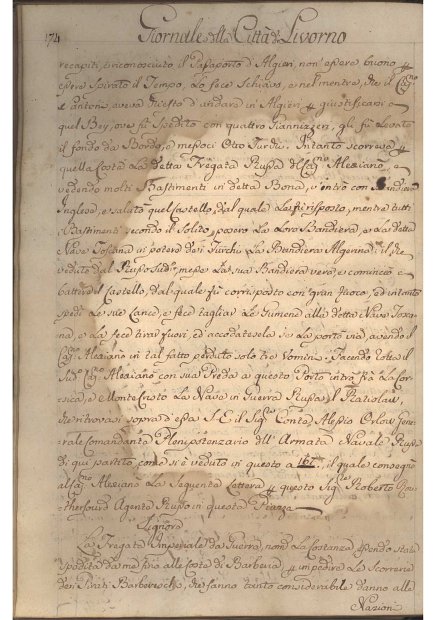 174 Giornale della Città di Livorno
recapiti, e riconosciuto il Passaporto d'Algieri, non essere buono p
essere spirato il Tempo, Lo fece Schiavo, e nel mentre, che il Cap.no
e Antoni aveva chiesto d'andare in Algieri p giustificarsi a
quel Bey, ove fù Spedito con quattro Giannizzeri, gli fù Levato
il fondo da Bordo, e messoci Otto Turchi. Intanto scorreva p
quella Costa La detta Fregata Russa del Cap.no Alesiano, e
vedendo molti Bastimenti in detta Bona, vi entrò con Bandiera
Inglese, e salutò quel Castello, dal quale La fù risposto, mentre tutti
Bastimenti secondo il Solito, posero La Loro Bandiera, e La detta
Nave Toscana in potere dei Turchi La Bandiera Algerina: il che
veduto dal Russo Sud.o messe La sua Bandiera vera, e cominciò a
battere il Castello, dal quale fù corrisposto con gran fuoco, ed intanto
spedì Le sue Lance, e fece tagliar Le Gumene alla detta Nave Toscana
na, e La fece tirar fuori, ed accodatasela se La portò via, avendo il
Cap.no Alesiano in tal fatto perduto solo tre Uomini. Facendo rotta il
Sud.o Cap.no Alesiano con sua Preda a questo Porto intra frà La Cor
sica, e Monte Cristo La Nave da Guerra Russa il
che ritrovasi sopra d'essa S. E. il Sig.e Conte Alessio Orlow Gene
rale Comandante Plenipotenziario dell'Armata Navale Russa
di qui partito come si è veduto in questo a 167. il quale consegnò
al Cap.no Alesiano La Seguente Lettera p questo Sig.re Roberto Ru
therfourd Agente Russo in questa Piazza
Signore
La Fregata Imperiale da Guerra, nom.a La Costanza essendo stata
spedita da me fino alle Coste di Barberia, p impedire Le Scorrerie
dei Pirati Barbereschi, che fanno tanto considerabile danno alle
Nazioni